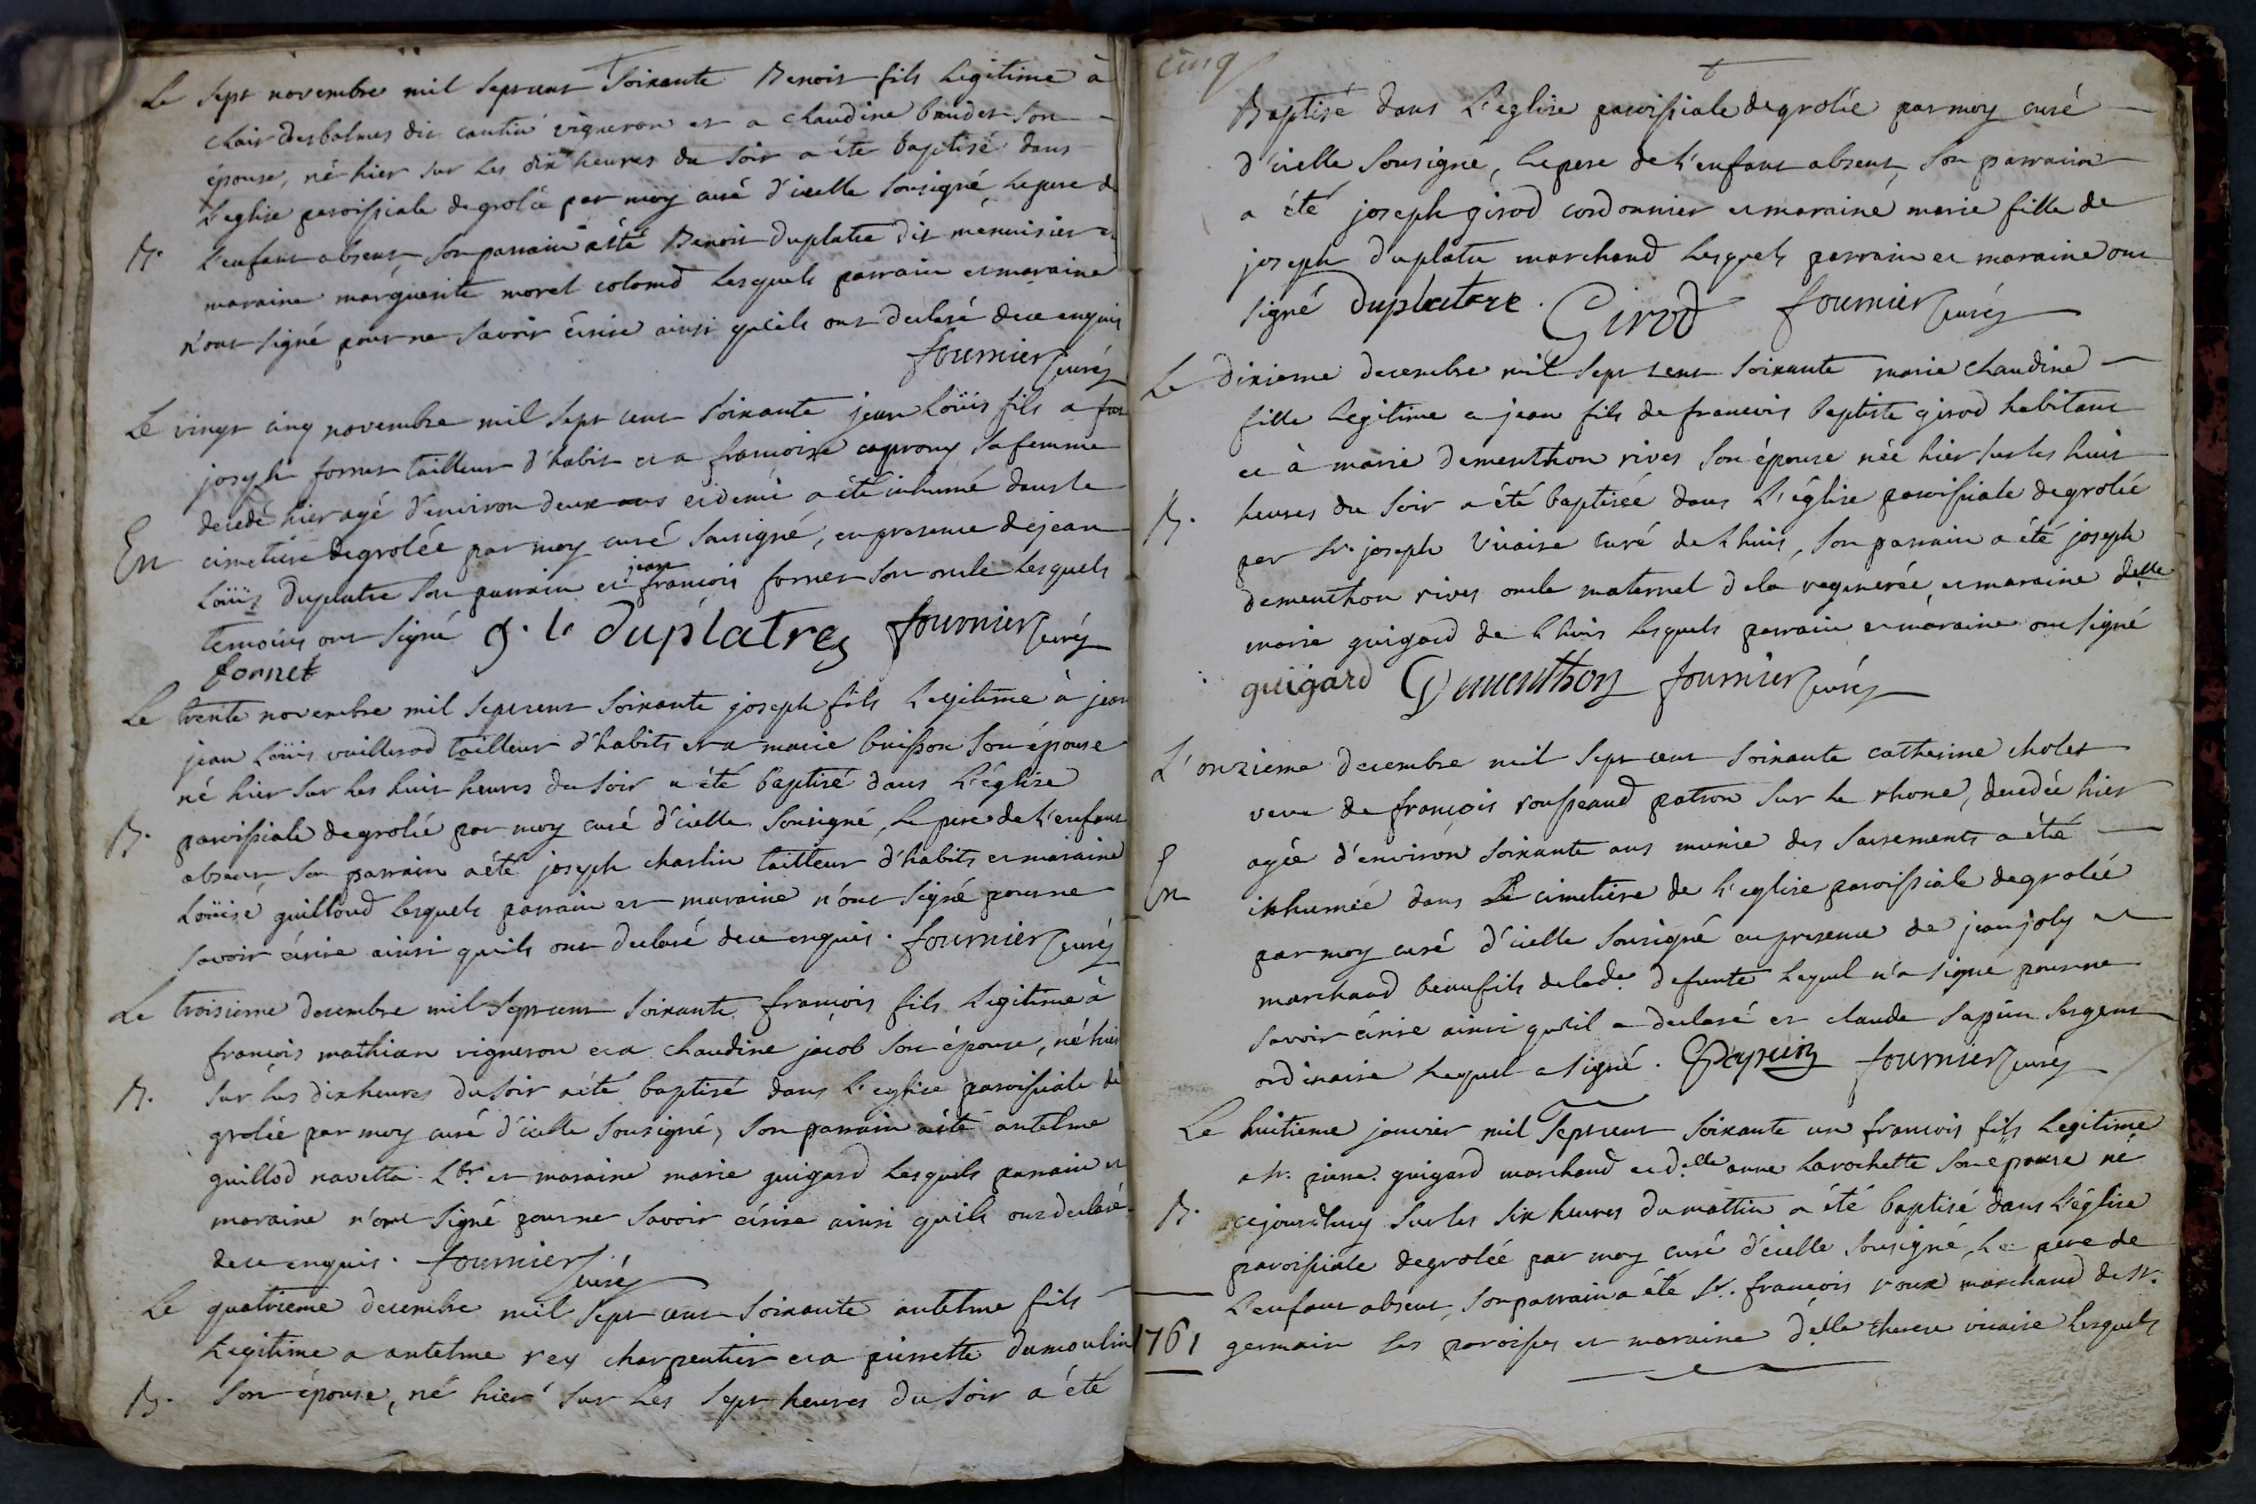 Le sept novembre mil sept cent soixante Benoit fils legitime à
clair desbalmes dit cantin vigneron et a claudine baudet son
épouse, né hier sur les dix heures du soir a été baptisé dans
L'eglise paroissiale de grolée par moy curé d'icelle sousigné, le pere de
B. L'enfant absent, son parrain a été Benoit duplatre dit menuisier et
maraine marguerite morel colomb lesquels parrain et maraine
n'ont signé pour ne savoir écrire ainsi qu'ils ont declaré de ce enquis
fournier curé
Le vingt cinq novembre mil sept cent soixante jean Loüis fils a
joseph fornet tailleur d'habit et a françoise caprony sa femme
decedé hier agé d'environ deux ans et demi a été inhumé dans le
En cimetiere de grolée par moy curé sousigné, en presence de jean
jean
Loüis duplatre son parrain et françois fornet son oncle lesquels
temoins ont signé J. L. duplatrez fournier curé
fornet
Le trente novembre mil sept cent soixante joseph fils legitime à jean
jean Loüis vuillerod tailleur d'habits et a marie buisson son épouse
né hier sur les huit heures du soir a été baptisé dans L'église
B. paroissiale de grolée par moy curé d'icelle sousigné, le pere de l'enfant
absent son parrain a été joseph charlin tailleur d'habits et maraine
Loüise guilloud lesquels parrain et maraine n'ont signé pour ne
savoir écrire ainsi qu'ils ont declaré de ce enquis. fournier curé
Le troisieme decembre mil sept cent soixante françois fils legitime à
françois mathian vigneron et a claudine jacob son épouse, né hier
B. sur les dix heures du soir a été baptisé dans L'eglise paroissiale de
grolée par moy curé d'icelle sousigné, son parrain a été antelme
guillod navetta Lbr. et maraine marie guigard lesquels parrain et
maraine n'ont signé pour ne savoir écrire ainsi qu'ils ont declaré
de ce enquis. fournier
curé
Le quatrieme decembre mil sept cent soixante antelme fils
Legitime a antelme rey charpentier et a pierrette dumoulin
B. son épouse, né hier sur les sept heures du soir a été
cinq
Baptisé dans L'eglise paroissiale de grolée par moy curé
d'icelle sousigné, le pere de l'enfant absent, son parrain
a été joseph girod cordonnier et maraine marie fille de
joseph duplatre marchand lesquels parrain et maraine ont
signé duplatre. Girod fournier curé
Le dixieme decembre mil sept cent soixante marie claudine
fille legitime a jean fils de francois baptiste girod habitant
et à marie dementhon rives son épouse née hier sur les huit
B. heures du soir a été baptisée dans L'église paroissiale de grolée
par Sr. joseph vicaire curé de Lhuis, son parrain a été joseph
dementhon rives oncle maternel de la regenerée, et maraine delle
marie guigard de Lhuis lesquels parrain et maraine ont signé
guigard Dementhon fournier curé
L'onzieme decembre mil sept cent soixante catherine cholet
veuve de françois rousseaud patron sur le rhone, decedée hier
agée d'environ soixante ans munie des sacrements a été
En inhumée dans le cimetière de l'eglise paroissiale de grolée
par moy curé d'icelle sousigné en presence de jean joly
marchand beaufils de lade. defunte lequel n'a signé pour ne
savoir écrire ainsi qu'il a declaré et claude papuin sergent
ordinaire lequel a signé. Papuin fournier curé
Le huitieme janvier mil sept cent soixante un francois fils legitime
a Sr. pierre guigard marchand et delle anne Larochette son epouse né
B. cejourdhuy sur les six heures du mattin a été baptisé dans l'église
paroissiale de grolée par moy curé d'icelle sousigné, le père de
L'enfant absent, son parrain a été Sr. françois roux marchand de St.
1761 germain les paroisses et maraine delle therese vicaire lesquels